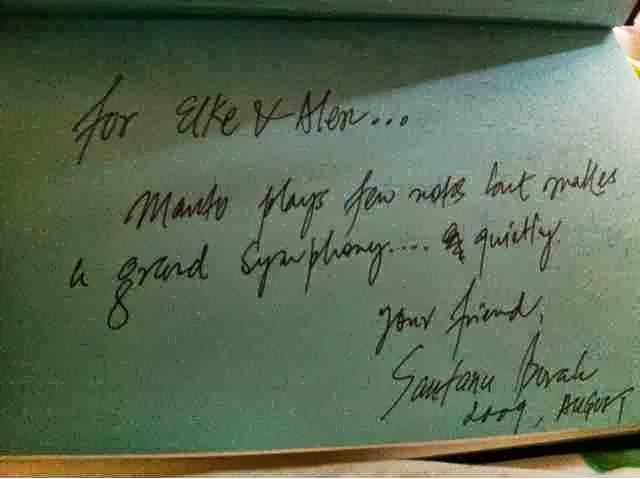 for Elke & Alen...
Manto plays few notes but makes
a grand symphony.... quietly.
your friend,
Santanu Borah
2009, AUGUST